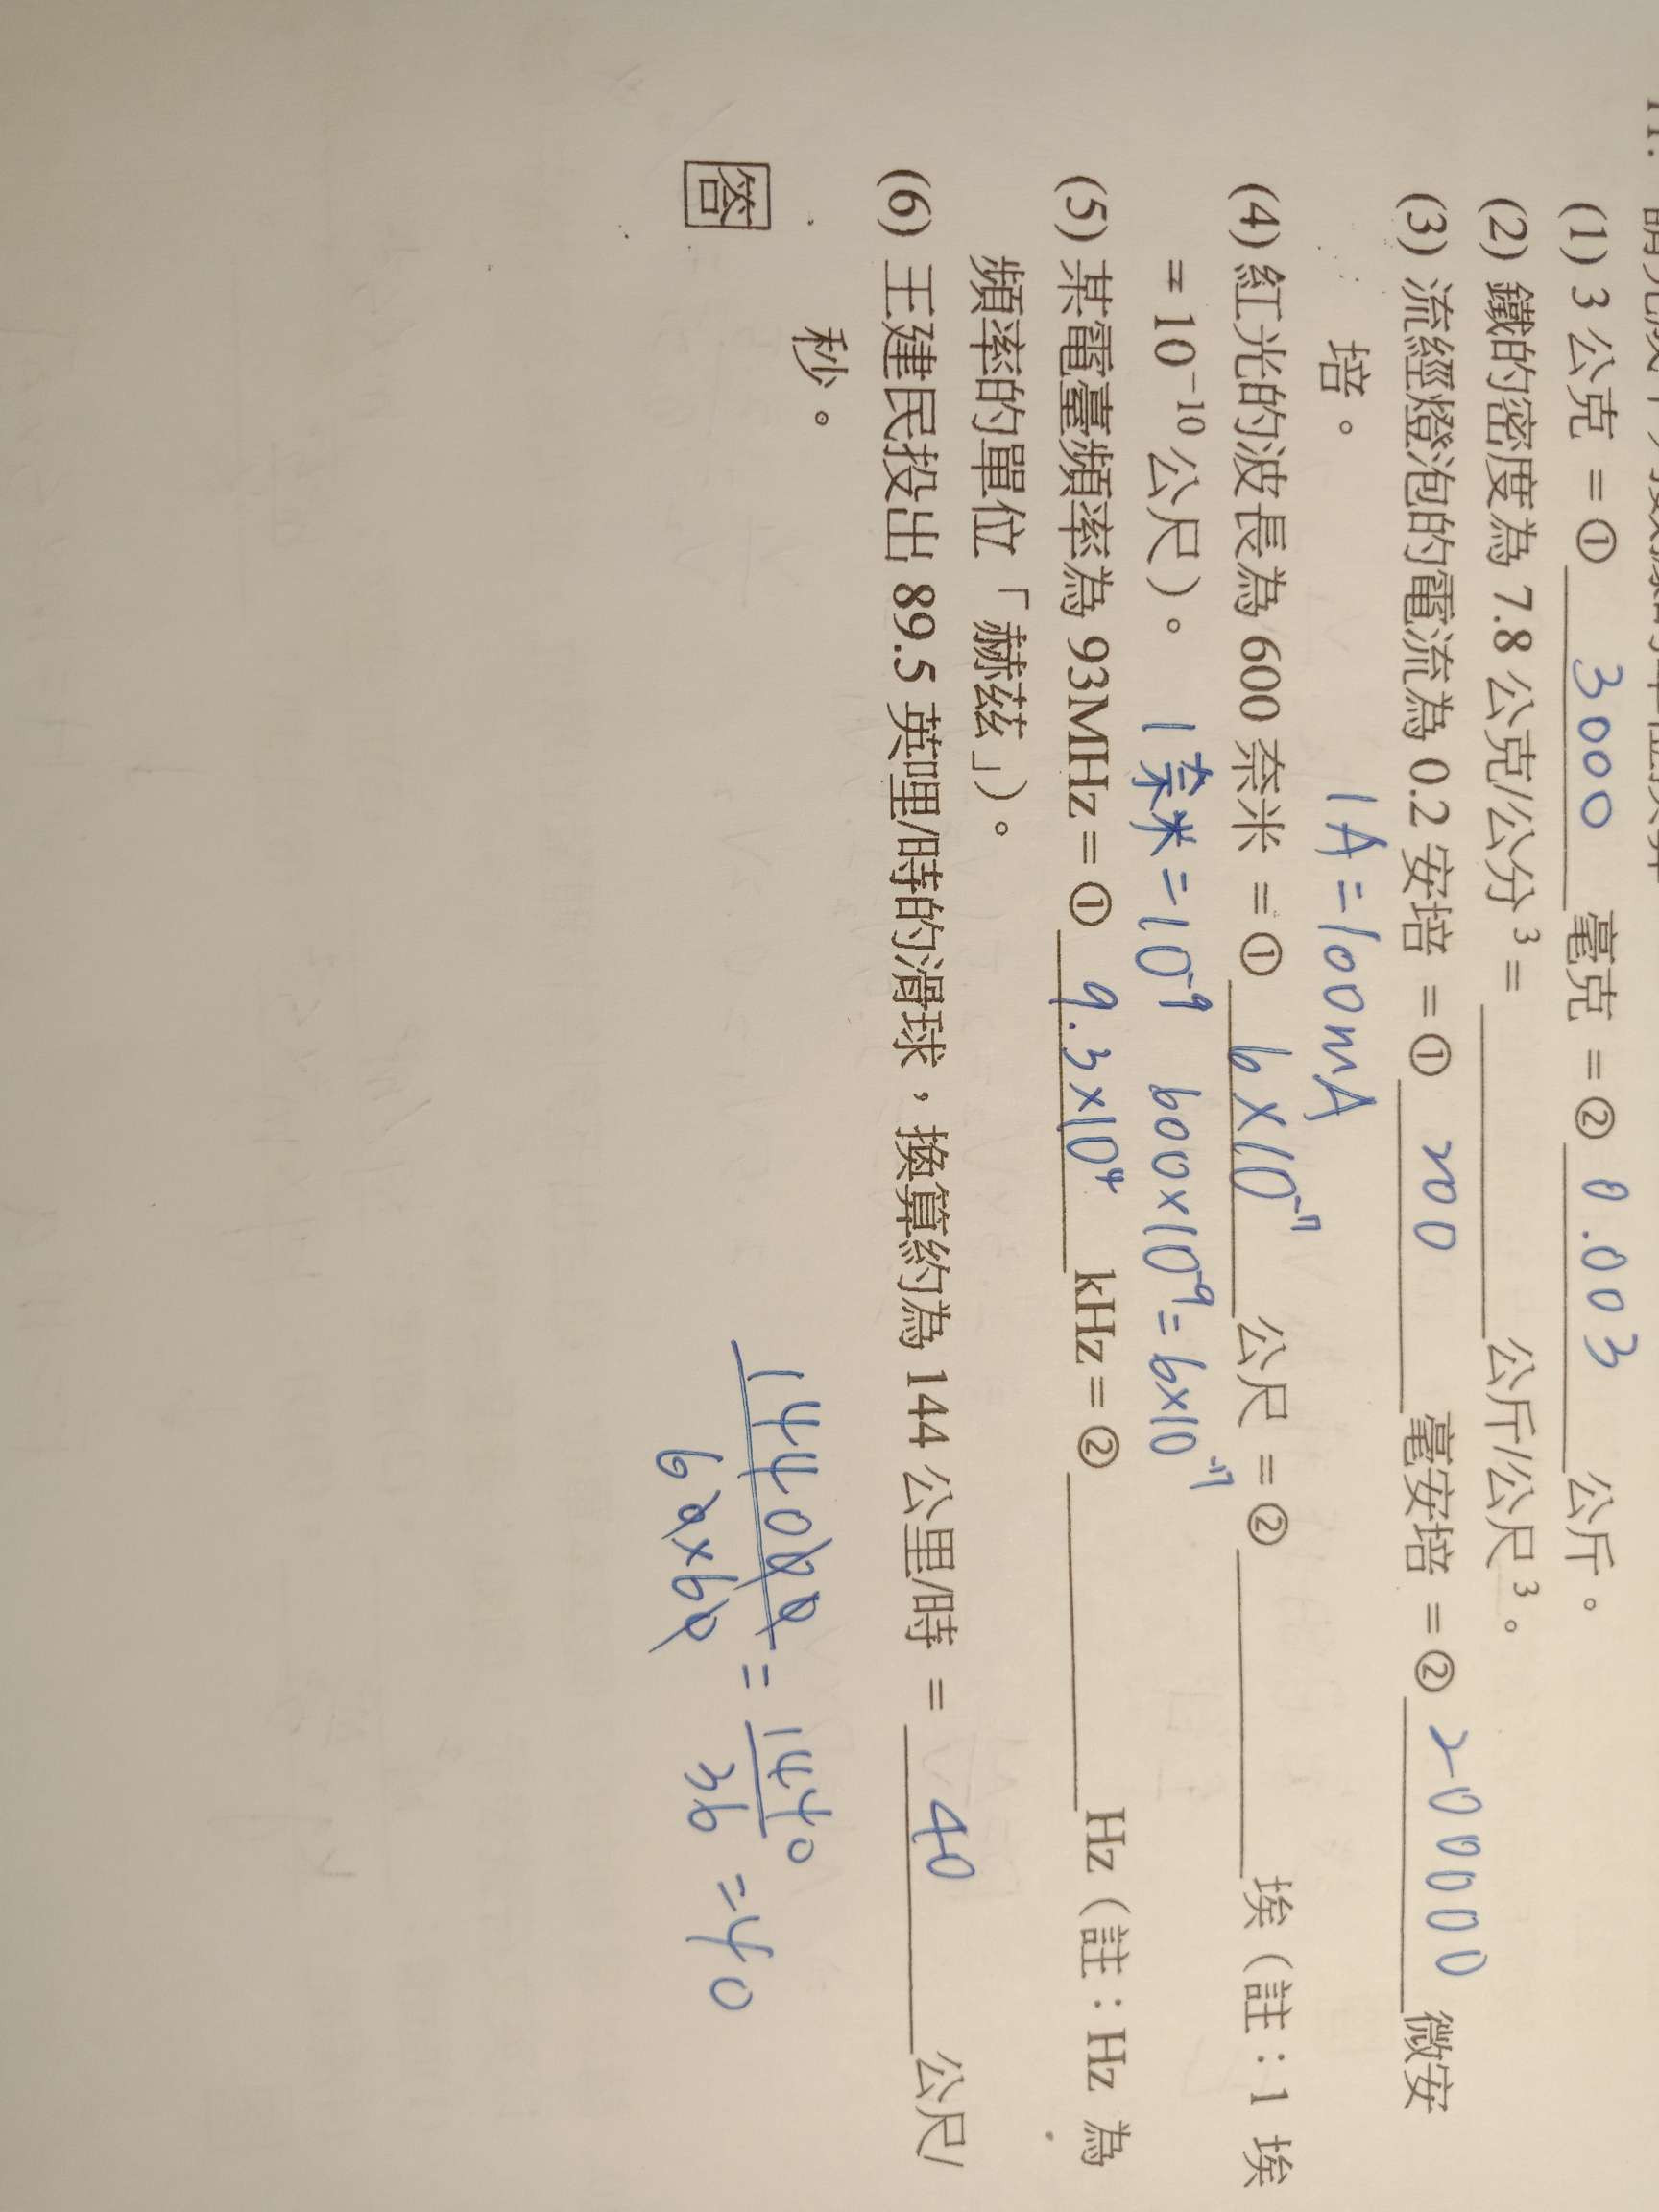 11.
(1) 3 公克 = ① 3000 毫克 = ② 0.003 公斤。
(2) 鐵的密度為 7.8 公克/公分³ = ______ 公斤/公尺³。
(3) 流經燈泡的電流為 0.2 安培 = ① 200 毫安培 = ② 200000 微安
培。 1A = 100mA
(4) 紅光的波長為 600 奈米 = ① 6×10⁻⁷ 公尺 = ② ______ 埃（註：1 埃
= 10⁻¹⁰ 公尺）。 1奈米 = 10⁻⁹ 600×10⁻⁹ = 6×10⁻⁷
(5) 某電臺頻率為 93MHz = ① 9.3×10⁴ kHz = ② ______ Hz（註：Hz 為
頻率的單位「赫茲」）。
(6) 王建民投出 89.5 英哩/時的滑球，換算約為 144 公里/時 = 40 公尺/
秒。
答
144000 / 60×60 = 1440 / 36 = 40